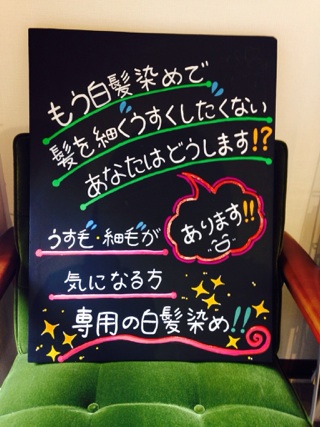 もう白髪染めで
髪を細くうすくしたくない
あなたはどうします!?
あります!!
うす毛・細毛が
気になる方
専用の白髪染め!!